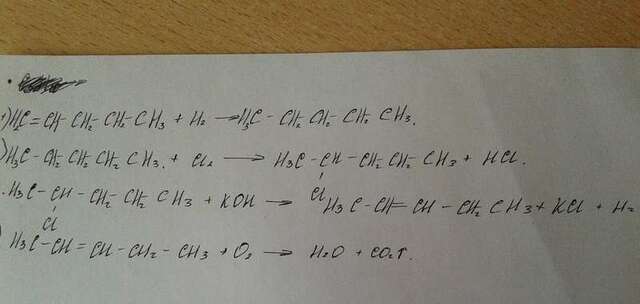 1) H₂C = CH - CH₂ - CH₂ - CH₃ + H₂ → H₃C - CH₂ CH₂ - CH₂ CH₃.
) H₃C - CH₂ CH₂ CH₂ CH₃. + Cl₂ → H₃C - CH - CH₂ CH₂ - CH₃ + HCl.
Cl
. H₃C - CH - CH₂ - CH₂ CH₃ + KOH → H₃C - CH = CH - CH₂ CH₃ + KCl + H₂
Cl
) H₃C - CH = CH - CH₂ - CH₃ + O₂ → H₂O + CO₂↑.